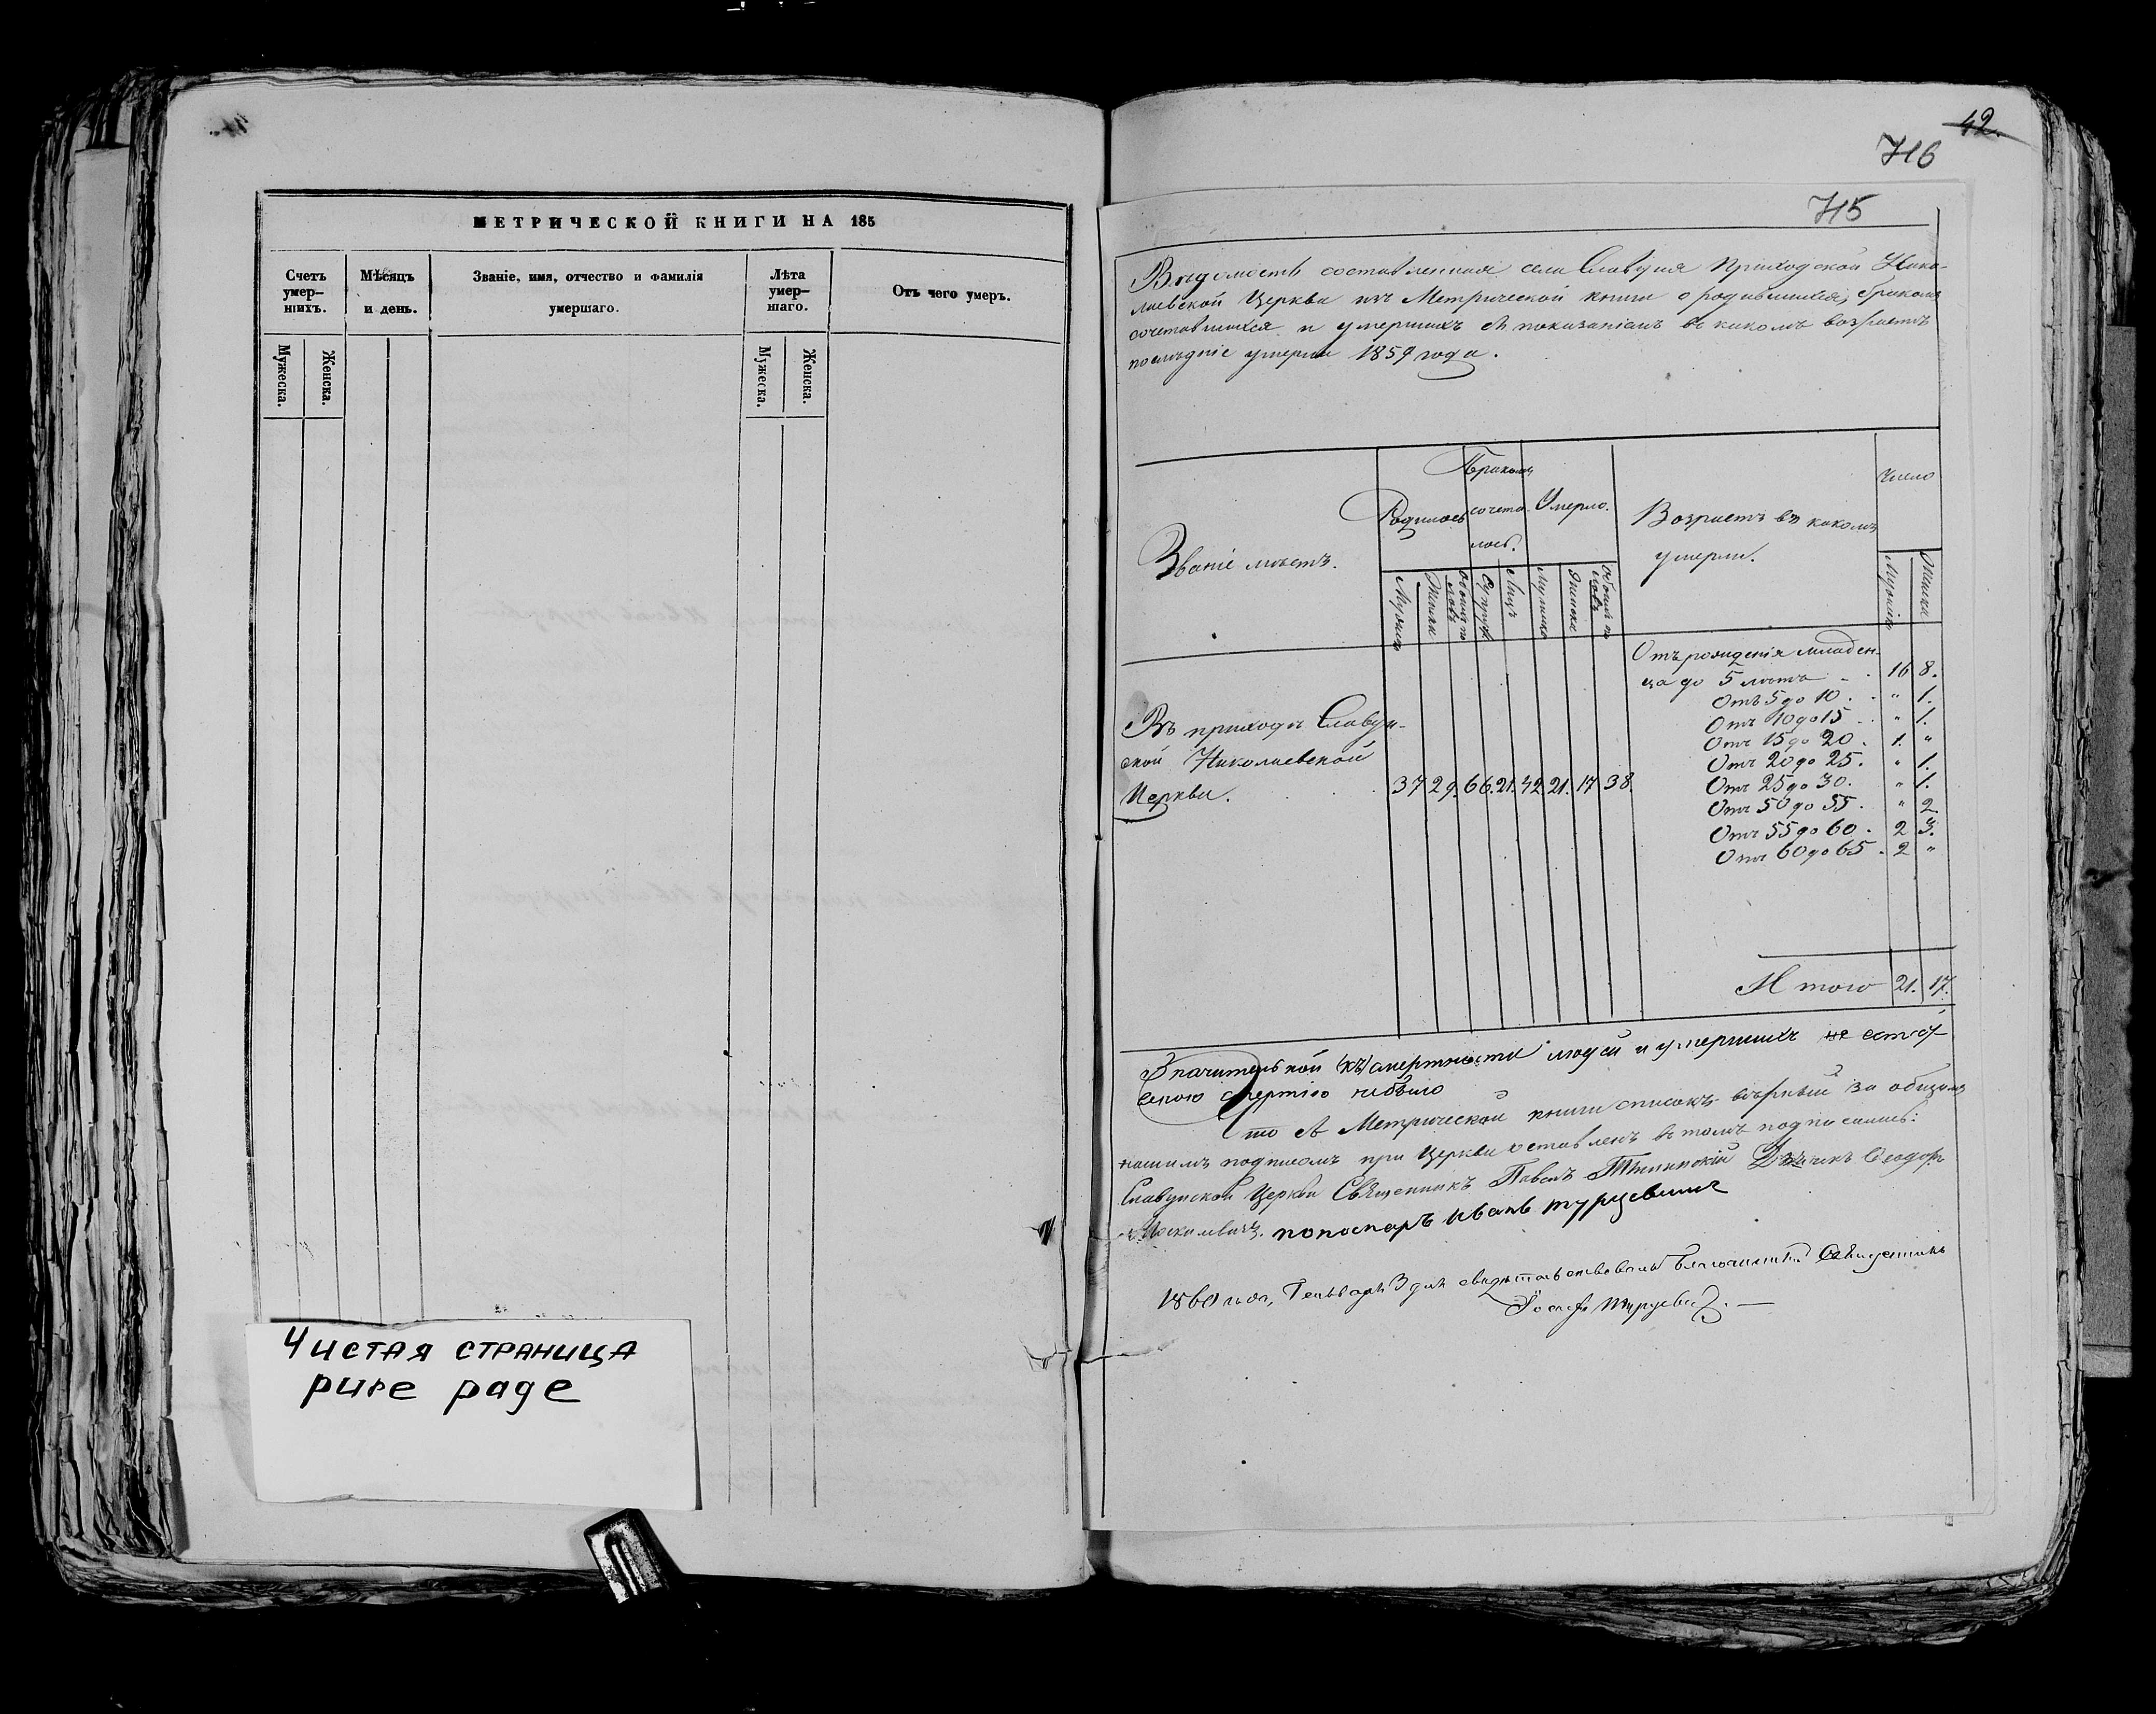 МЕТРИЧЕСКОЙ КНИГИ НА 185
Счетъ умер-шихъ.
Мѣсяцъ и день.
Званіе, имя, отчество и фамилія умершаго.
Лѣта умер-шаго.
Отъ чего умеръ.
Мужеска.
Женска.
Мужеска.
Женска.
Чистая страница
pure page
42.
716
715
Вѣдомость составленная села Славуня Приходской Нико-
лаевской Церкви изъ Метрической книги о родившихся, бракомъ
сочетавшихся и умершихъ съ показаніемъ въ какомъ возрастѣ
послѣдніе умерли 1859 года.
Званіе мѣстъ.
Родилось
Бракомъ сочета-лось.
Умерло.
Возрастъ въ какомъ
умерли.
Число
Отъ рожденія младен-
ца до 5 лѣтъ 16 8.
Отъ 5 до 10 . " 1.
Отъ 10 до 15 . " 1.
Отъ 15 до 20 . 1. "
Отъ 20 до 25. " 1.
Отъ 25 до 30. " 1.
Отъ 50 до 55 . " 2.
Отъ 55 до 60 . 2 3.
Отъ 60 до 65 . 2 "
Въ приходѣ Славун-
ской Николаевской
Церкви. 37 29. 66. 21. 42. 21. 17 38.
Итого 21. 17.
Значительной смертности людей и умершихъ не естест-
венною смертію небыло
что съ Метрической книги списокъ вѣрный за общимъ
нашимъ подписомъ при Церкви оставленъ въ томъ подписались:
Славунской Церкви Священникъ Павелъ
пономаръ Иванъ Турцевичъ
1860 года, Генваря 3 дня свидѣтельствовалъ Благочинный Священникъ
Іосифъ Турцевичъ. —